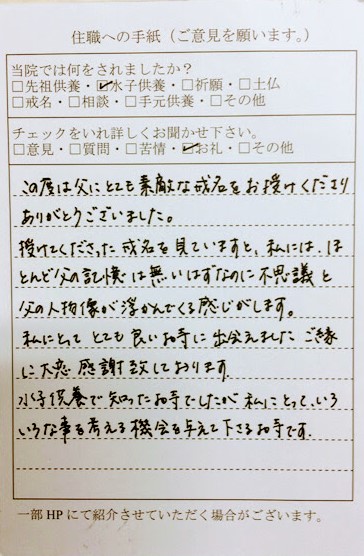 住職への手紙（ご意見を願います。）
当院では何をされましたか？
□先祖供養・☑水子供養・□祈願・□土仏
□戒名・□相談・□手元供養・□その他
チェックをいれ詳しくお聞かせ下さい。
□意見・□質問・□苦情・☑お礼・□その他
この度は父にとても素敵な戒名をお授けくださり
ありがとうございました。
授けてくださった戒名を見ていますと、私には、ほ
とんど父の記憶は無いはずなのに不思議と
父の人物像が浮かんでくる感じがします。
私にとって とても良いお寺に出会えました ご縁
に大変感謝致しております。
水子供養で知ったお寺でしたが 私にとって、いろ
いろな事を考える機会を与えて下さるお寺です。
一部 HP にて紹介させていただく場合がございます。